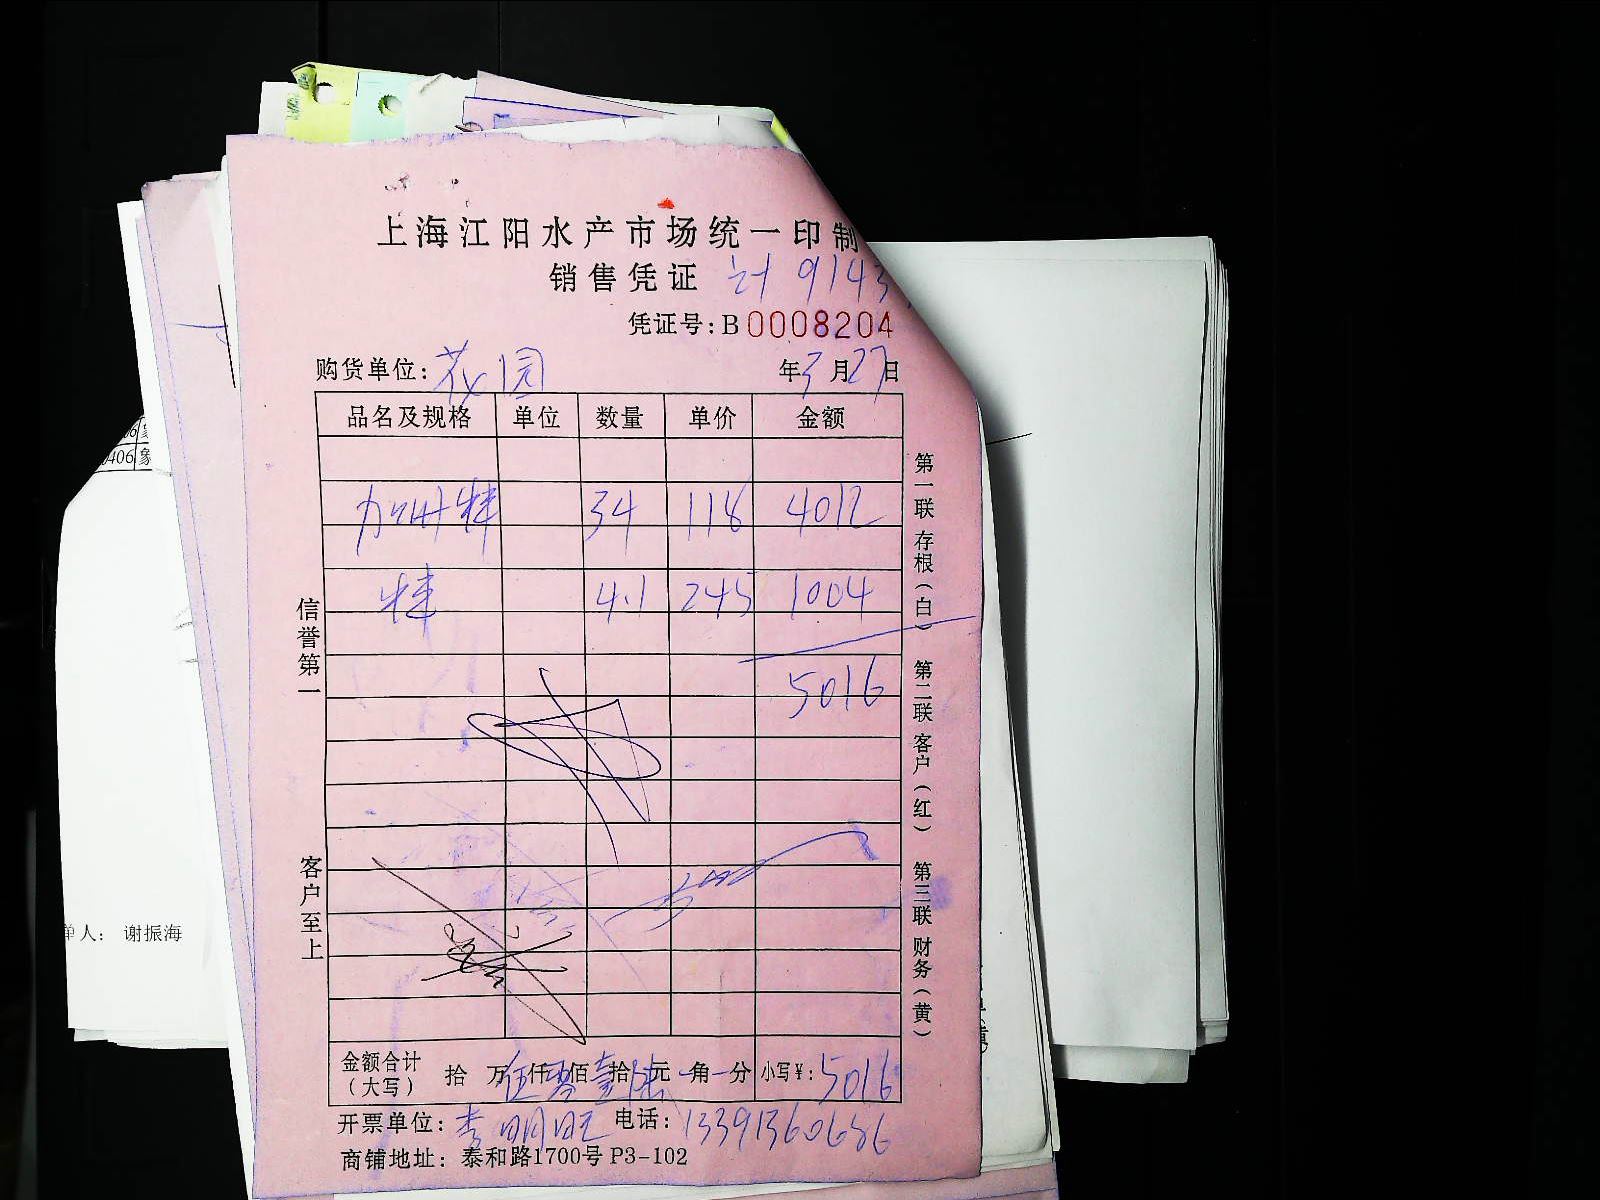 上海江阳水产市场统一印制
销售凭证 计 9143
凭证号：B 0008204
购货单位：花园 年3月27日
品名及规格 单位 数量 单价 金额
加州桂 34 118 4012
桂 4.1 245 1004
5016
金额合计（大写） 拾 万伍仟零佰壹拾陆元 角 分 小写¥：5016
开票单位：李明旺 电话：13391360686
商铺地址：泰和路1700号 P3-102
信誉第一
客户至上
第一联 存根（白） 第二联 客户（红） 第三联 财务（黄）
406
单人： 谢振海